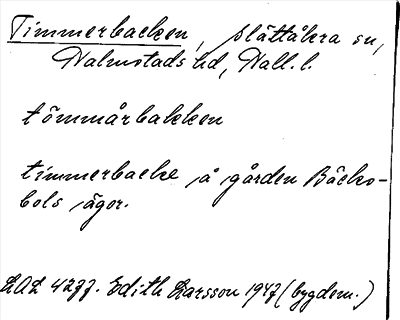 Timmerbacken, Slättåkra sn,
Halmstads hd, Hall. l.
tömmårbakken
timmerbacke å gården Bäcko-
bols ägor.
LAL 4277. Edith Larsson 1947 (bygdem.)